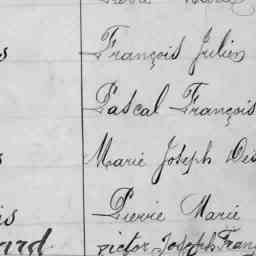 François Julien
s
Pascal François
Marie Joseph
s
Pierre Marie
is
ard
Victor Joseph Franç